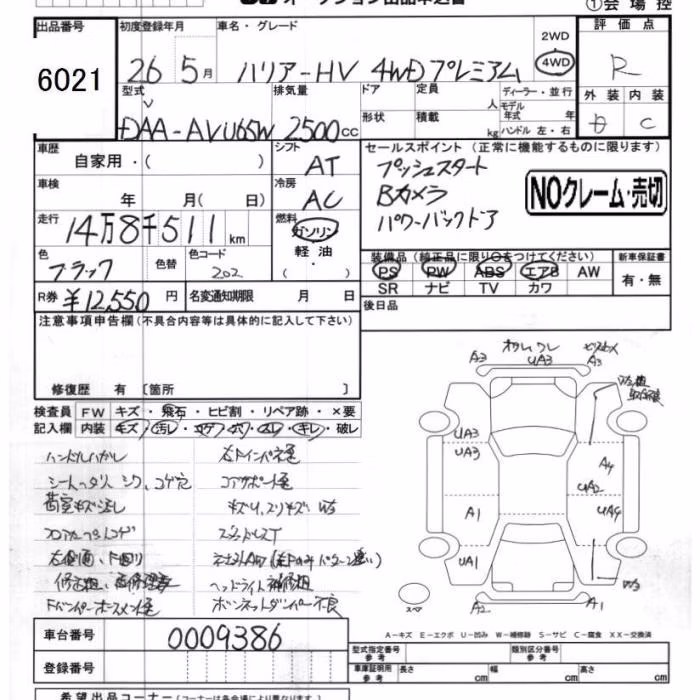 オークション出品申込書
①会場控
出品番号
6021
初度登録年月
26 5月
車名・グレード
ハリアーHV 4WD プレミアム
2WD
4WD
評価点
R
型式
DAA-AVU65W
排気量
2500cc
ドア
形状
定員
人
積載
kg
ディーラー・並行
モデル年式 年
ハンドル 左・右
外装 内装
D C
車歴
自家用・( )
シフト
AT
セールスポイント (正常に機能するものに限ります)
プッシュスタート
Bカメラ
パワーバックドア
NOクレーム・売切
車検
年 月( 日)
冷房
AC
走行
14万8千511km
燃料
ガソリン
軽油
・( )
色
ブラック
色替
色コード
202
装備品(純正品に限り○をつけてください)
PS PW ABS エアB AW
SR ナビ TV カワ
新車保証書
有・無
R券 ¥12,550円
名変通知期限 月 日
後日品
注意事項申告欄(不具合内容等は具体的に記入して下さい)
修復歴 有 〔箇所 〕
検査員記入欄
FW キズ・飛石・ヒビ割・リペア跡・×要
内装 キズ・汚レ・コゲ・穴・スレ・キレ・破レ
ハンドルハガレ
シートヘタリ シワ、コゲ穴
荷室キズ汚レ
右側面、下回り
右Fインパネ歪
コアサポート歪
キズ、スリキズ W3
スタッドレスT
ヘッドライト補修粗
ボンネットダンパー不良
A3
UA3
A3
UA3
UA3
A1
UA1
A2
A4
UA2
UA4
W3
A1
スペア
A-キズ E-エクボ U-凹み W-補修跡 S-サビ C-腐食 XX-交換済
車台番号
0009386
登録番号
型式指定番号
参考
類別区分番号
参考
車庫証明用
参考
長さ
幅
高さ
希望出品コーナー(コーナーは各会場により異なります。)